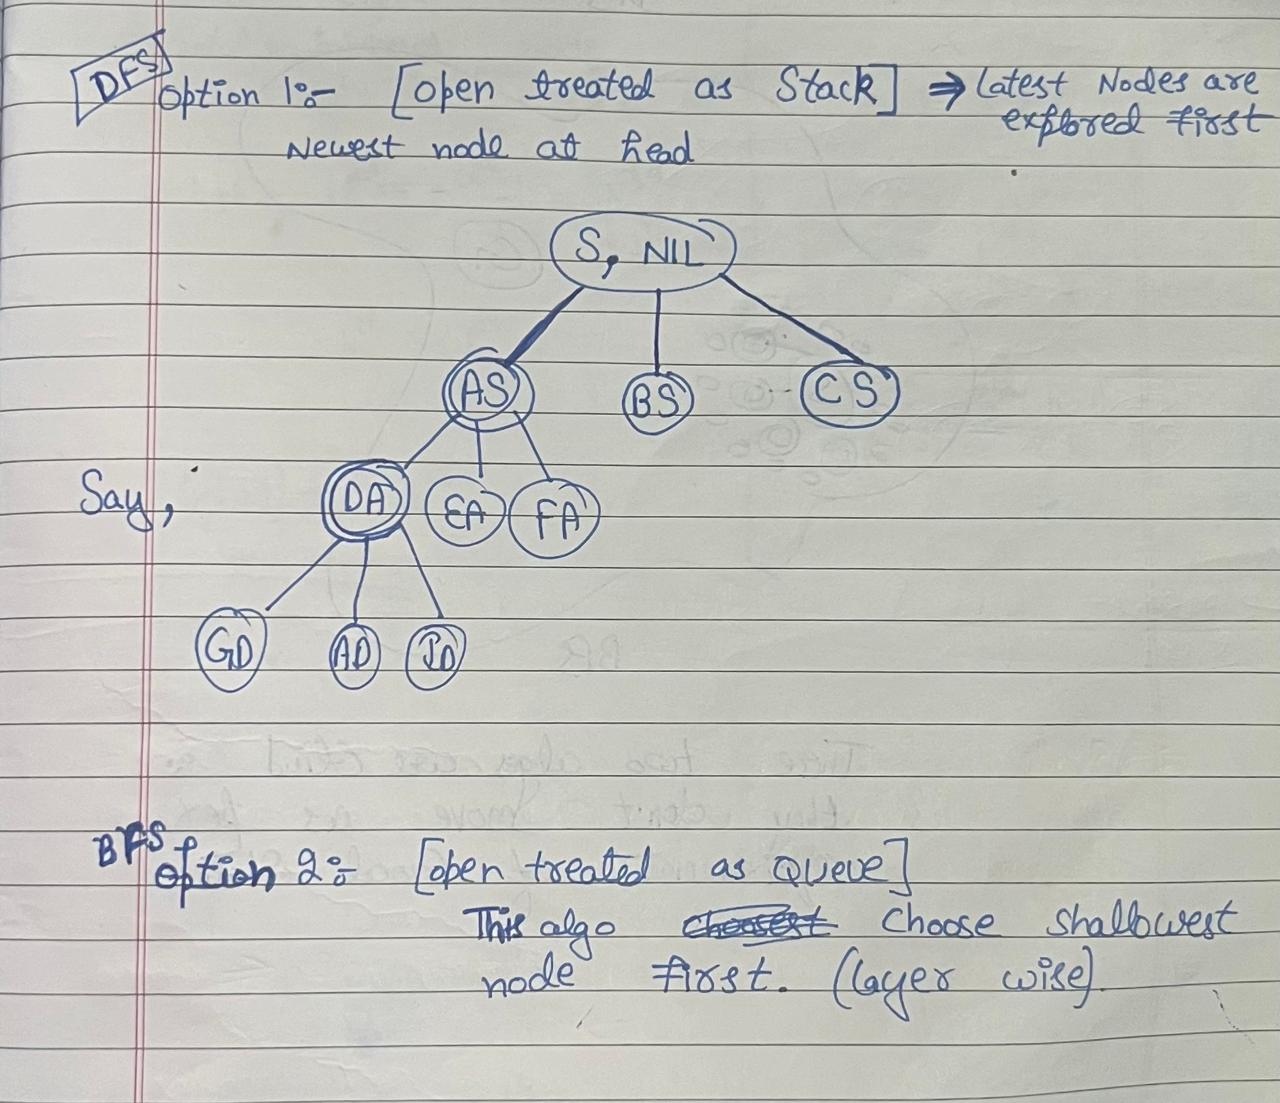 DFS
option 1:- [open treated as Stack] ⇒ Latest Nodes are
explored first
Newest node at head
S, NIL
AS BS CS
Say,
DA EA FA
GD AD JD
BFS
option 2:- [open treated as Queue]
This algo choose shallowest
node first. (layer wise)